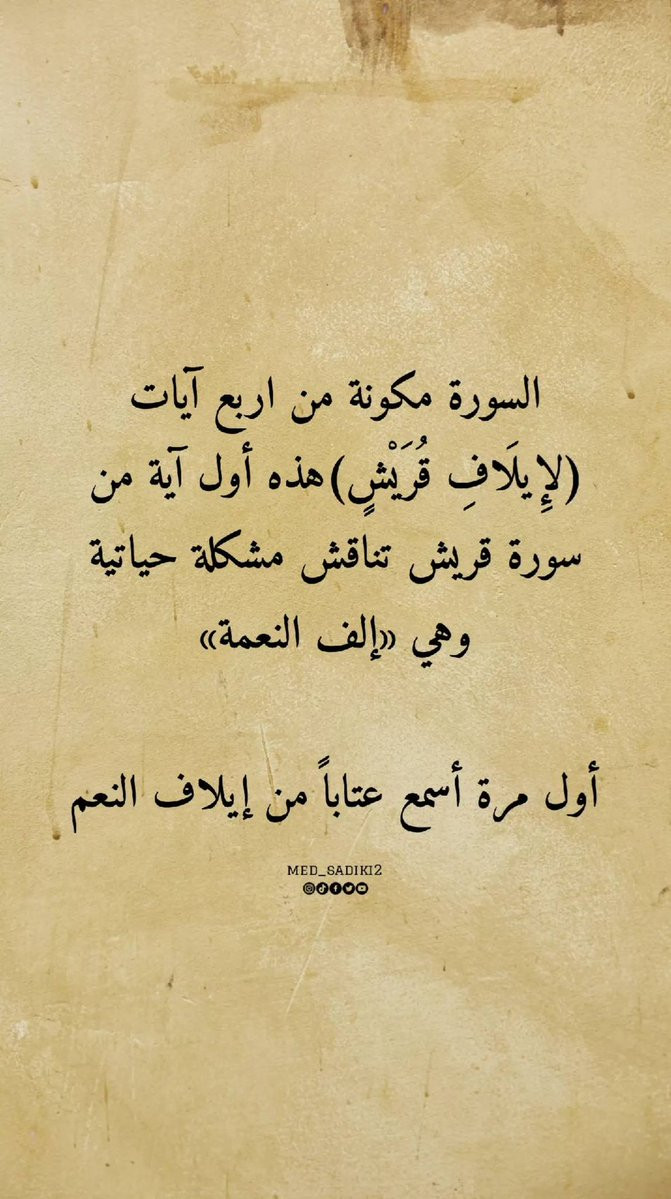 السورة مكونة من اربع آيات
(لِإِيلَافِ قُرَيْشٍ)هذه أول آية من
سورة قريش تناقش مشكلة حياتية
وهي «إلف النعمة»
أول مرة أسمع عتاباً من إيلاف النعم
MED_SADIKI2